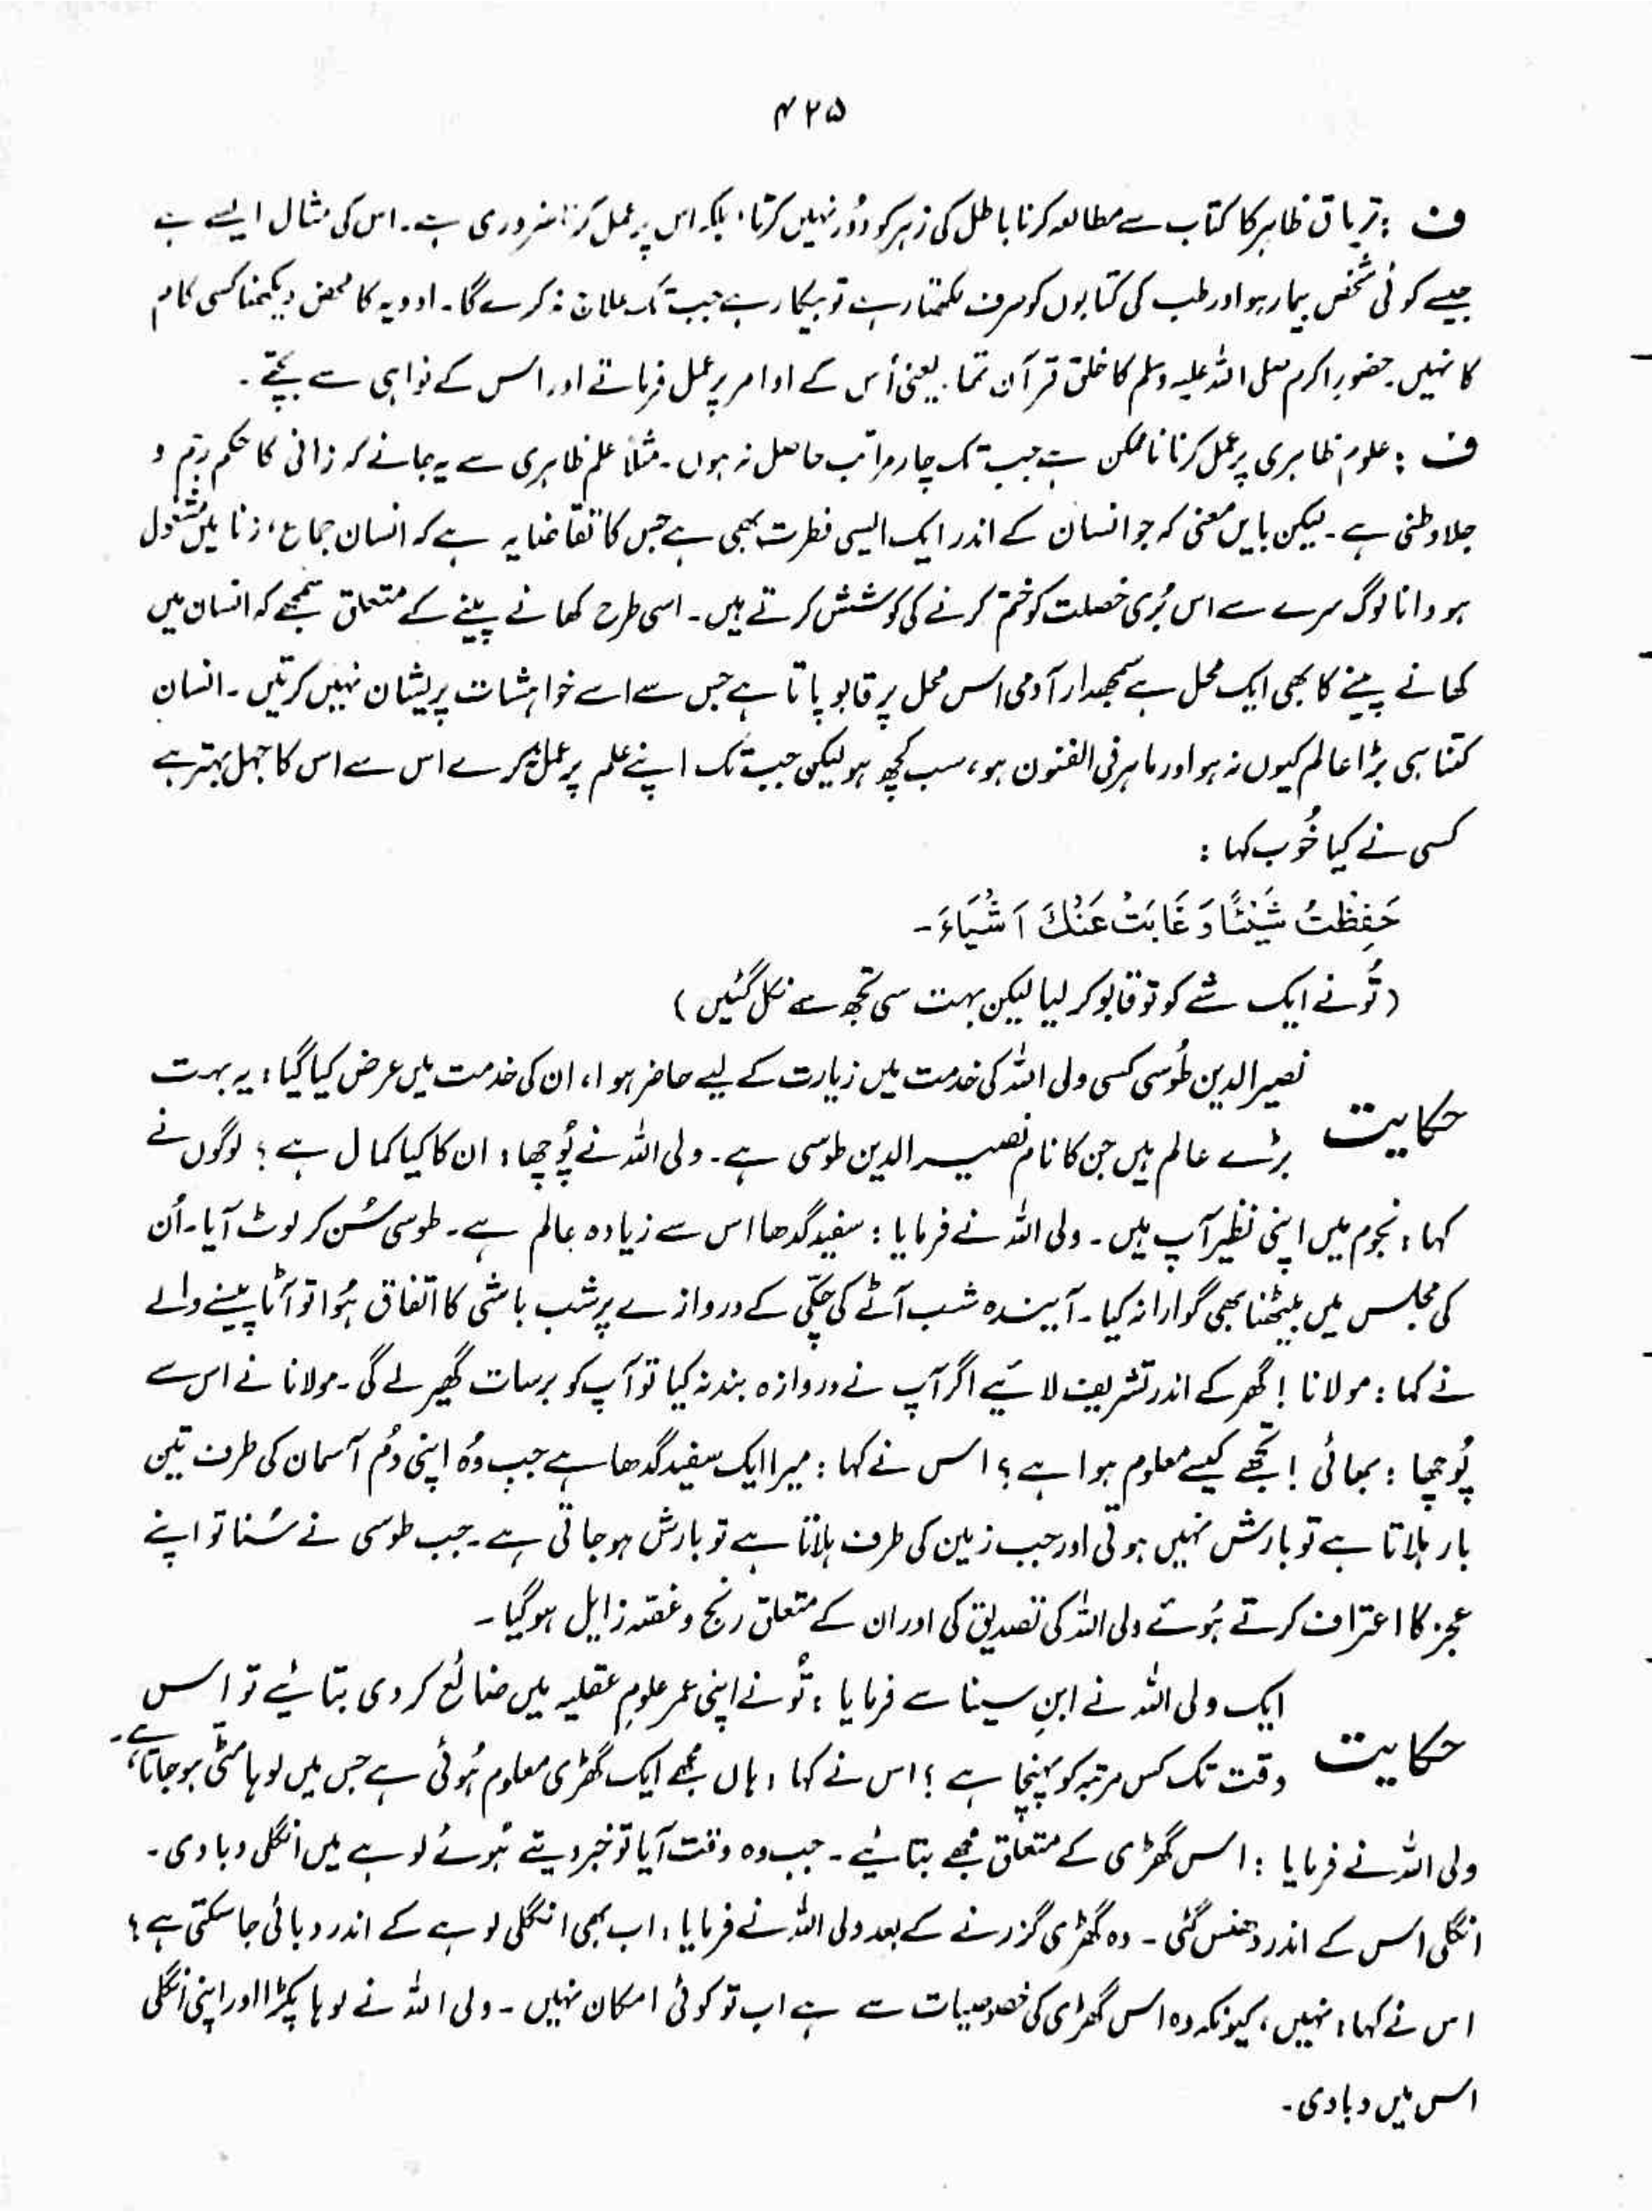 ۴۲۵
ف : تریاق ظاہر کا کتاب سے مطالعہ کرنا باطل کی زہر کو دُور نہیں کرتا، بلکہ اس پر عمل کرنا ضروری ہے۔ اس کی مثال ایسے ہے
جیسے کوئی شخص بیمار ہو اور طب کی کتابوں کو صرف لکھتا رہے تو بیکار ہے جب تک علاج نہ کرے گا۔ ادویہ کا محض دیکھنا کسی کام
کا نہیں۔ حضور اکرم صلی اللہ علیہ وسلم کا خلق قرآن تھا۔ یعنی اُس کے اوامر پر عمل فرماتے اور اس کے نواہی سے بچتے۔
ف : علومِ ظاہری پر عمل کرنا ناممکن ہے جب تک چار مراتب حاصل نہ ہوں۔ مثلاً علم ظاہری سے یہ جانے کہ زانی کا حکم رجم و
جلاوطنی ہے۔ لیکن بایں معنی کہ جو انسان کے اندر ایک ایسی فطرت بھی ہے جس کا تقاضا یہ ہے کہ انسان جماع، زنا میں مشغول
ہو دانا لوگ سرے سے اس بُری خصلت کو ختم کرنے کی کوشش کرتے ہیں۔ اسی طرح کھانے پینے کے متعلق سمجھے کہ انسان میں
کھانے پینے کا بھی ایک محل ہے سمجھدار آدمی اس محل پر قابو پاتا ہے جس سے اسے خواہشات پریشان نہیں کرتیں۔ انسان
کتنا ہی بڑا عالم کیوں نہ ہو اور ماہر فی الفنون ہو، سب کچھ ہو لیکن جب تک اپنے علم پر عمل نہ کرے اس سے اس کا جہل بہتر ہے
کسی نے کیا خُوب کہا :
حَفِظْتُ شَيْئًا وَ غَابَتْ عَنْكَ اَشْيَاءَ۔
(تُو نے ایک شے کو تو قابو کر لیا لیکن بہت سی تجھ سے نکل گئیں)
نصیر الدین طُوسی کسی ولی اللہ کی خدمت میں زیارت کے لیے حاضر ہوا، ان کی خدمت میں عرض کیا گیا : یہ بہت
حکایت بڑے عالم ہیں جن کا نام نصیر الدین طوسی ہے۔ ولی اللہ نے پُوچھا : ان کا کیا کمال ہے ؟ لوگوں نے
کہا : نجوم میں اپنی نظیر آپ ہیں۔ ولی اللہ نے فرمایا : سفید گدھا اس سے زیادہ عالم ہے۔ طوسی سُن کر لوٹ آیا۔ اُن
کی مجلس میں بیٹھنا بھی گوارا نہ کیا۔ آیندہ شب آٹے کی چکّی کے دروازے پر شب باشی کا اتفاق ہُوا تو آٹا پیسنے والے
نے کہا : مولانا ! گھر کے اندر تشریف لائیے اگر آپ نے دروازہ بند نہ کیا تو آپ کو برسات گھیر لے گی۔ مولانا نے اس سے
پُوچھا : بھائی ! تجھے کیسے معلوم ہوا ہے ؟ اس نے کہا : میرا ایک سفید گدھا ہے جب وُہ اپنی دُم آسمان کی طرف تین
بار ہلاتا ہے تو بارش نہیں ہوتی اور جب زمین کی طرف ہلاتا ہے تو بارش ہو جاتی ہے۔ جب طوسی نے سُنا تو اپنے
عجز کا اعتراف کرتے ہُوئے ولی اللہ کی تصدیق کی اور ان کے متعلق رنج و غصّہ زایل ہوگیا۔
ایک ولی اللہ نے ابنِ سینا سے فرمایا : تُو نے اپنی عمر علومِ عقلیہ میں ضائع کر دی بتائیے تو اس
حکایت وقت تک کس مرتبہ کو پہنچا ہے ؟ اس نے کہا : ہاں مجھے ایک گھڑی معلوم ہُوئی ہے جس میں لوہا مٹی ہو جاتا ہے۔
ولی اللہ نے فرمایا : اس گھڑی کے متعلق مجھے بتائیے۔ جب وہ وقت آیا تو خبر دیتے ہُوئے لوہے میں انگلی دبا دی۔
انگلی اس کے اندر دھنس گئی۔ وہ گھڑی گزرنے کے بعد ولی اللہ نے فرمایا : اب بھی انگلی لوہے کے اندر دبائی جا سکتی ہے ؟
اس نے کہا : نہیں، کیونکہ وہ اس گھڑی کی خصوصیات سے ہے اب تو کوئی امکان نہیں۔ ولی اللہ نے لوہا پکڑا اور اپنی انگلی
اس میں دبا دی۔